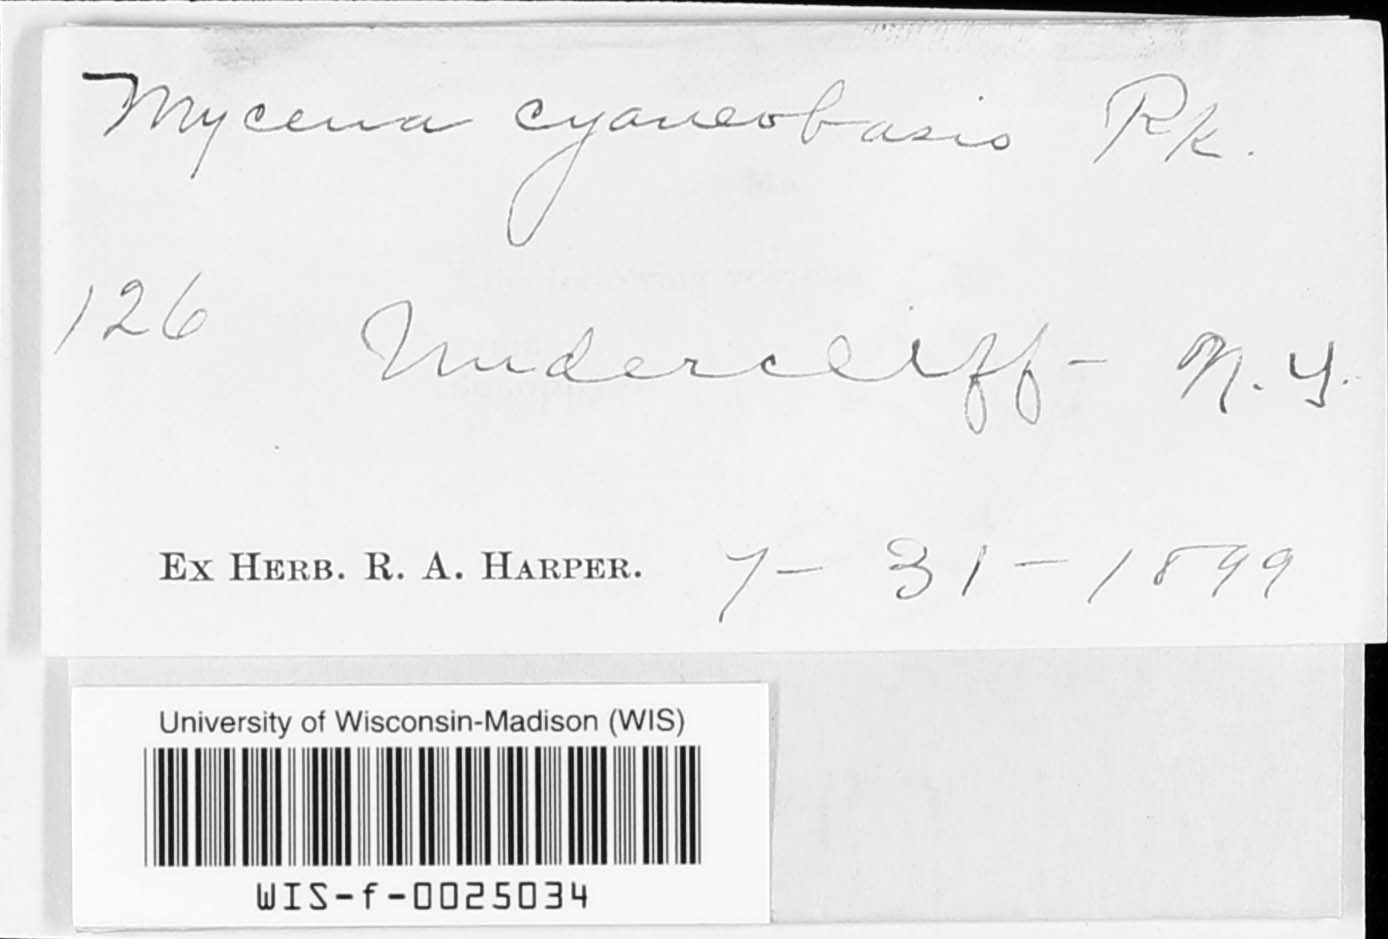 Mycena cyaneobasis Pk.
126 Undercliff - N.Y.
EX HERB. R. A. HARPER. 7-31-1899
University of Wisconsin-Madison (WIS)
WIS-f-0025034